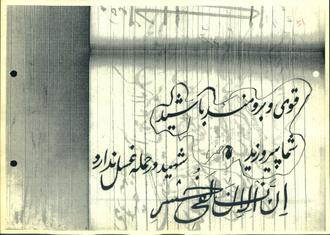 ۵۱
قوی و برومند باشید
شما پیروزید
شهید در حمله غسل ندارد
ان الانسان لفی خسر